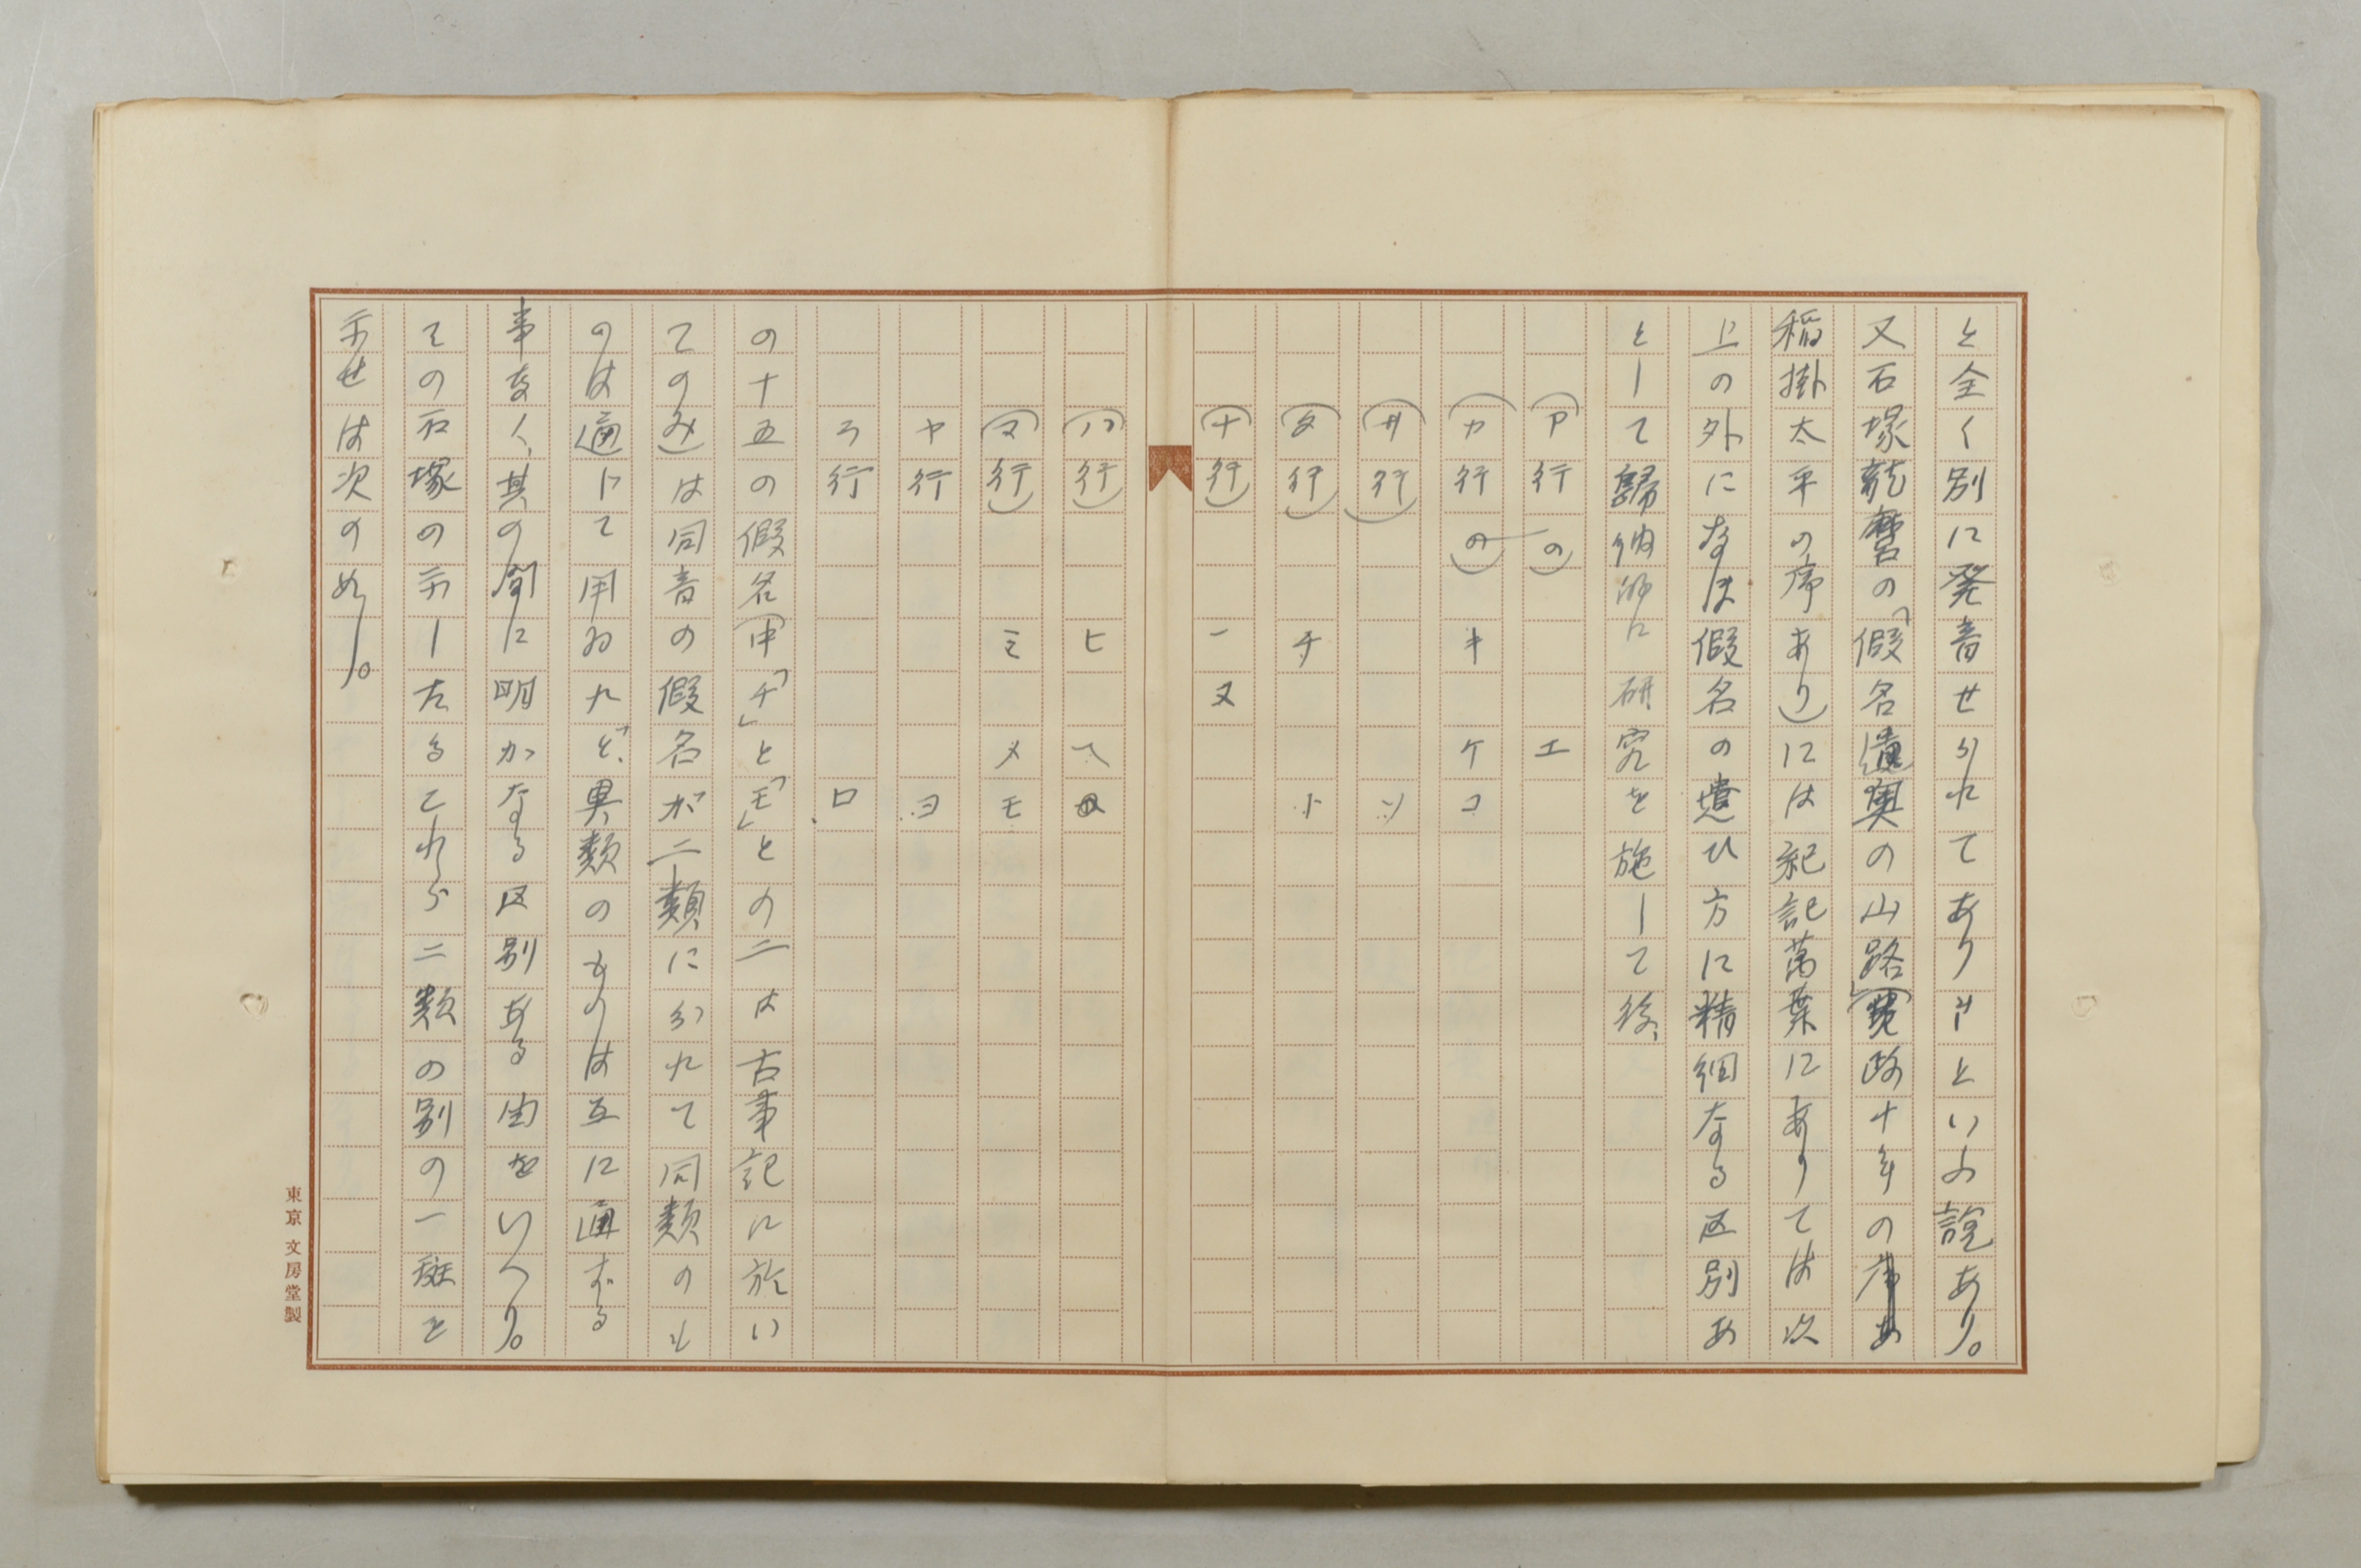 と全く別に発音せられてありきといふ説あり。
又石塚龍麿の「假名遣奥の山路」(寛政十年の序あ
稲掛太平の序あり)には紀記萬葉にありては次
上の外になほ假名の遣ひ方に精細なる区別あ
として歸納的に研究を施して後、
(ア行の) エ
(カ行の) キ ケ コ
(サ行) ソ
(タ行) チ ト
(ナ行) ヌ
(ハ行) ヒ ヘ
(マ行) ミ メ モ
ヤ行 ヨ
ラ行 ロ
の十五の假名(中「チ」と「モ」との二は古事記に於い
てのみ)は同音の假名が二類に分れて同類のも
のは通じて用ゐれど、異類のものは互に通ずる
事なく、其の間に明かなる区別ある由をいへり。
その石塚の示したるこれら二類の別の一斑を
示せば次の如し。
東京 文房堂製